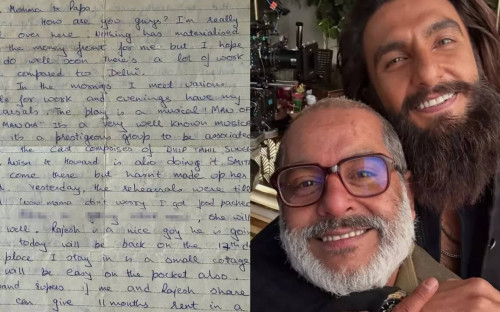 Momma & Papa,
How are you guys? I'm really
over here. Nothing has materialised
the money front for me but I hope
do well soon there's a lot of work
compared to Delhi.
In the mornings I meet various
for work and evenings have my
The play is a musical 'MAN OF
It's a very well known musical
its a prestigeous group to be associated
the cast comprises of DILIP TAHIL
& Howard is also doing it.
come there but hasn't made up her
Yesterday, the rehearsals were till
mama don't worry I got food packed
, she will
well. Rajesh is a nice guy he is going
today will be back on the 17th
place I stay in is a small cottage
will be easy on the pocket also.
Rupees. I me and Rajesh share
can give 11 months rent in a